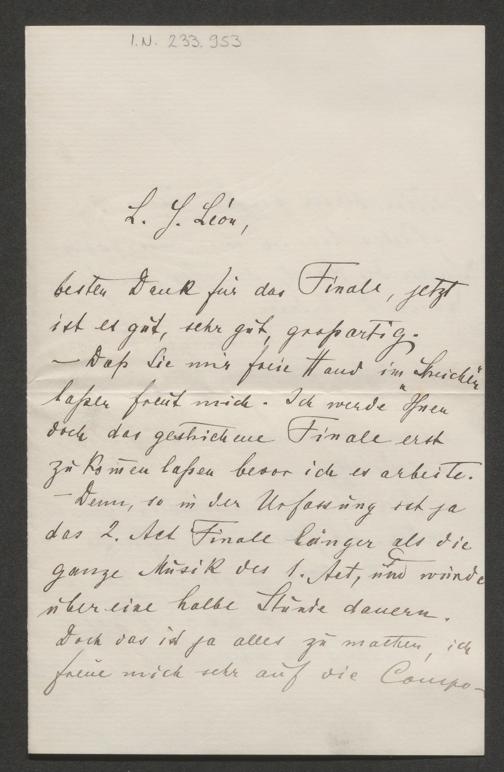 I.N. 233.953
L. H. Léon,
besten Dank für das Finale, jetzt
ist es gut, sehr gut, großartig.
– Daß Sie mir freie Hand im "Streichen"
laßen freut mich. Ich werde Ihnen
doch das gestrichene Finale erst
zukom̅en laßen bevor ich es arbeite.
– Denn, so in der Urfassung ist ja
das 2. Act Finale länger als die
ganze Musik des 1. Act, und würde
über eine halbe Stunde dauern.
Doch das ist ja alles zu machen, ich
freue mich sehr auf die Compo-